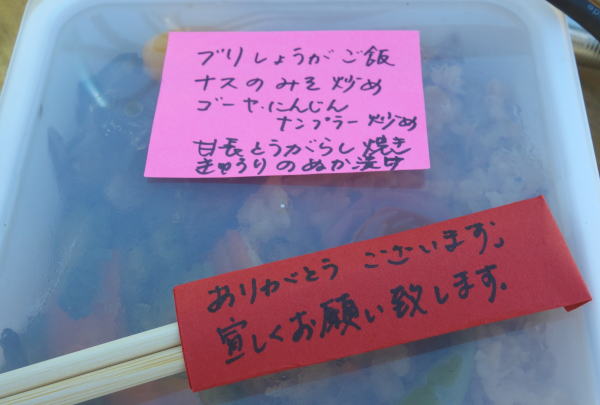 ブリしょうがご飯
ナスのみそ炒め
ゴーヤ・にんじん
ナンプラー炒め
甘長とうがらし焼き
きゅうりのぬか漬け
ありがとうございます。
宜しくお願い致します。